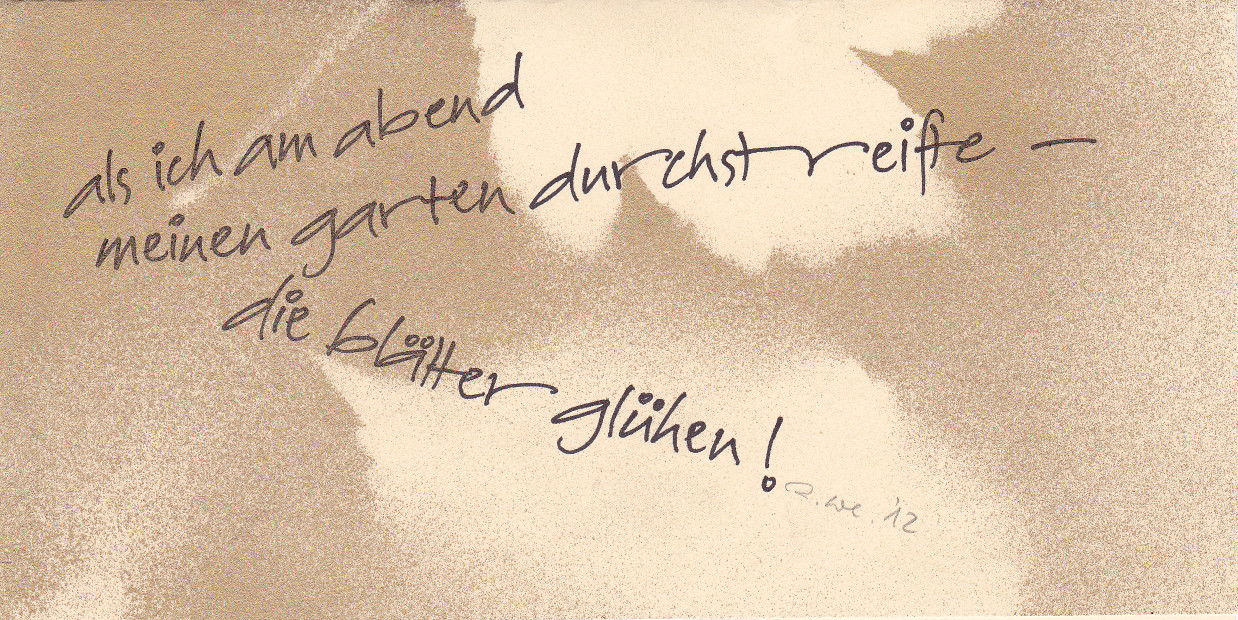 als ich am abend
meinen garten durchstreifte —
die blätter glühen!
R.we.'12